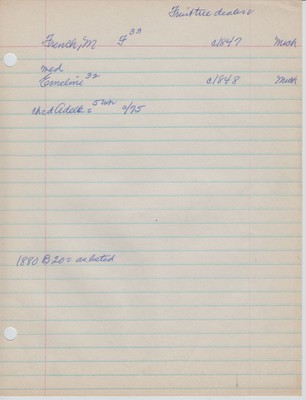 Fruit tree dealer
French, M F 33 c1847 Mich
med
Emeline 32 c1848 Mich
ch=d Adell = 5 c/75
1880 B20 = as listed